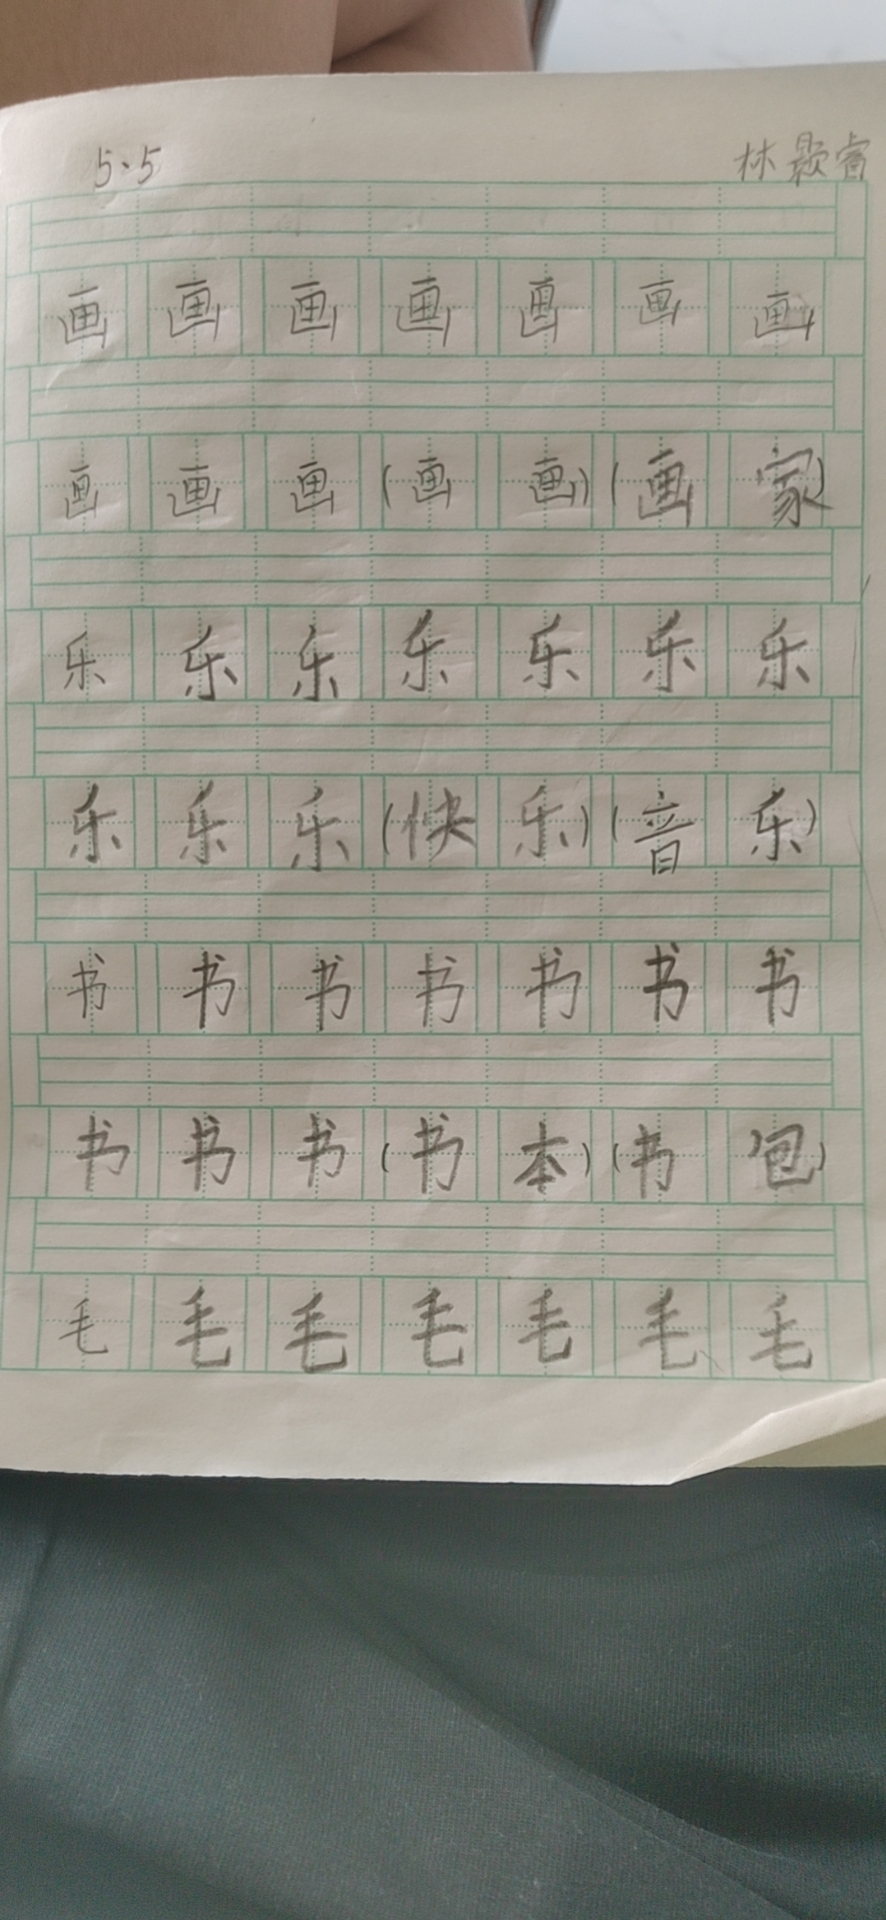 5.5 林颢睿
画 画 画 画 画 画 画
画 画 画 (画 画) (画 家)
乐 乐 乐 乐 乐 乐 乐
乐 乐 乐 (快 乐) (音 乐)
书 书 书 书 书 书 书
书 书 书 (书 本) (书 包)
毛 毛 毛 毛 毛 毛 毛